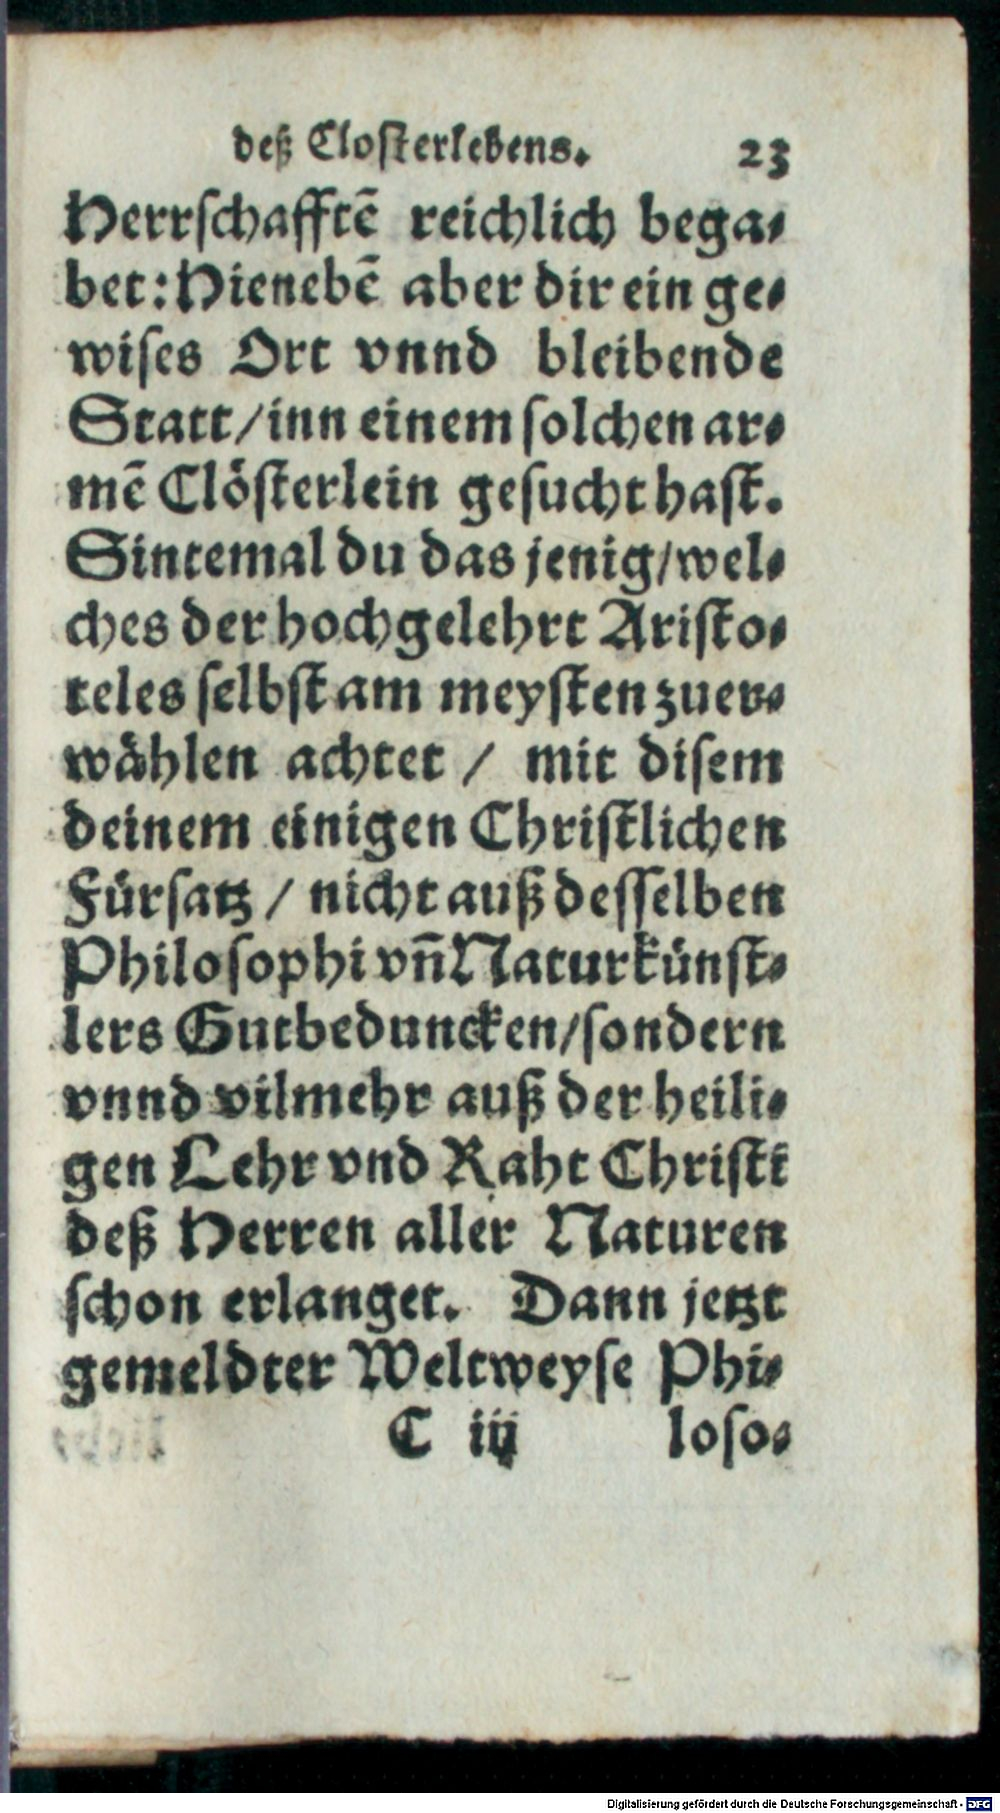 deß Closterlebens. 23
Herrschafftē reichlich bega-
bet: Hienebē aber dir ein ge-
wises Ort vnnd bleibende
Statt/inn einem solchen ar-
mē Clösterlein gesucht hast.
Sintemal du das jenig/wel-
ches der hochgelehrt Aristo-
teles selbst am meysten zuer-
wählen achtet / mit disem
deinem einigen Christlichen
Fürsatz / nicht auß desselben
Philosophi vñ Naturkünst-
lers Gutbeduncken/sondern
vnnd vilmehr auß der heili-
gen Lehr vnd Raht Christi
deß Herren aller Naturen
schon erlanget. Dann jetzt
gemeldter Weltweyse Phi-
C iij loso-
Digitalisierung gefördert durch die Deutsche Forschungsgemeinschaft - DFG